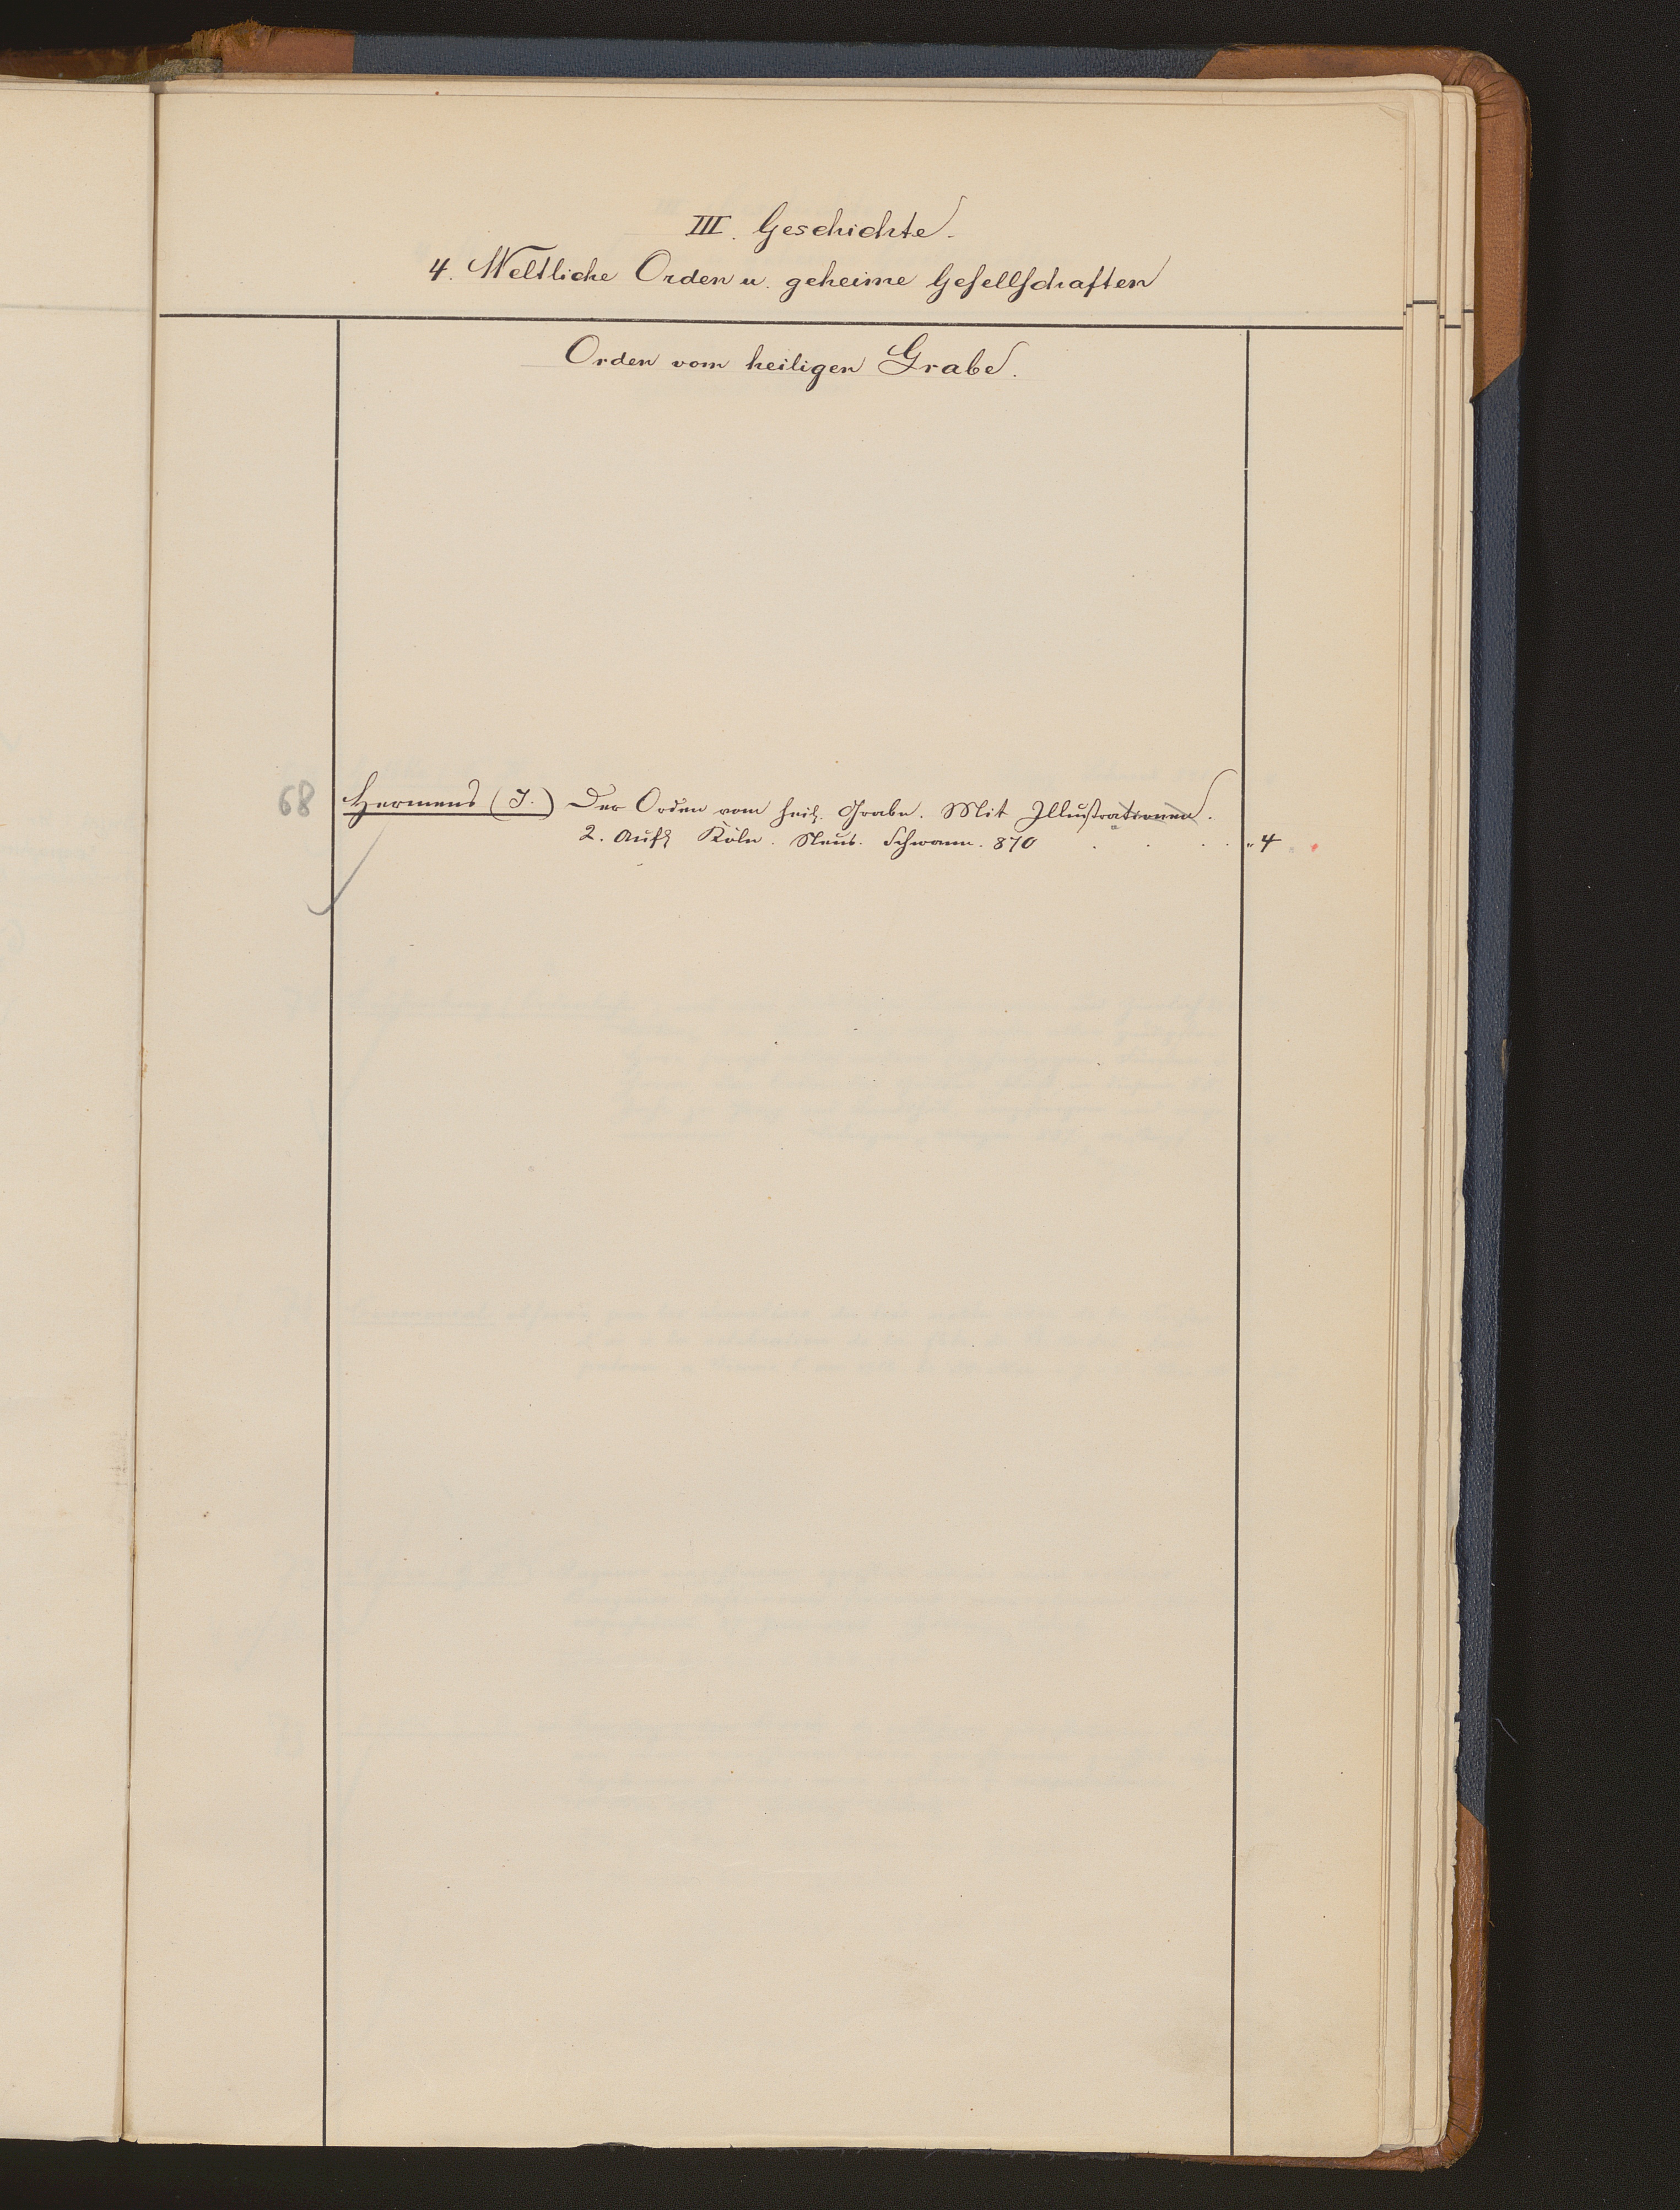 III. Geschichte.
4. Weltliche Orden u. geheime Gesellschaften
Orden vom heiligen Grabe.
68 Hermens (J.) Der Orden vom heil. Grabe. Mit Illustrationen.
2. Aufl Köln. Neuss. Schwann. 870 . . . . " 4